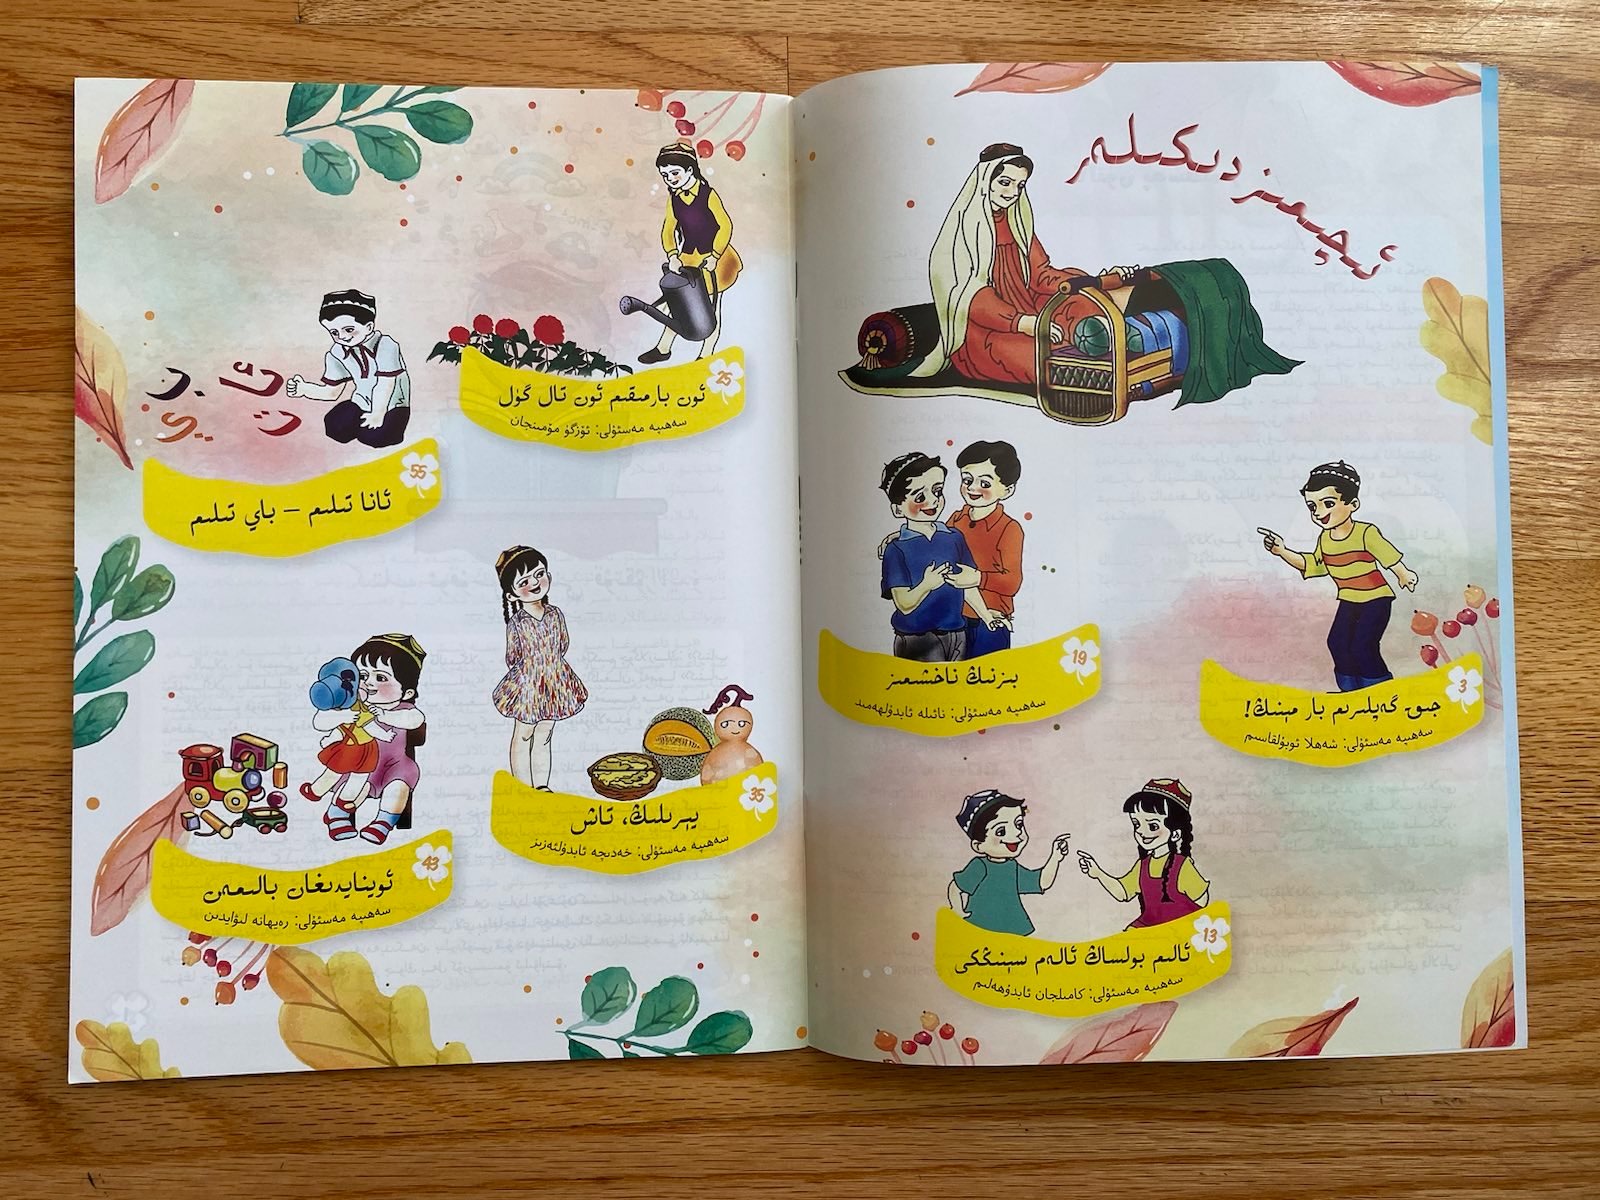 ئىچىمىزدىكىلەر
3
جىق گەپلىرىم بار مېنىڭ!
سەھىپە مەسئۇلى: شەھلا ئوبۇلقاسىم
13
ئالىم بولساڭ ئالەم سېنىڭكى
سەھىپە مەسئۇلى: كامىلجان ئابدۇھەلىم
19
بىزنىڭ ناخشىمىز
سەھىپە مەسئۇلى: نائىلە ئابدۇلھەمىد
25
ئون بارمىقىم ئون تال گۈل
سەھىپە مەسئۇلى: ئۆزگۈ مۆمىنجان
35
يېرىلىڭ، تاش
سەھىپە مەسئۇلى: خەدىچە ئابدۇلئەزىز
43
ئوينايدىغان بالىمەن
سەھىپە مەسئۇلى: رەيھانە لىۋايدىن
ئا ب
ت ې
55
ئانا تىلىم – باي تىلىم